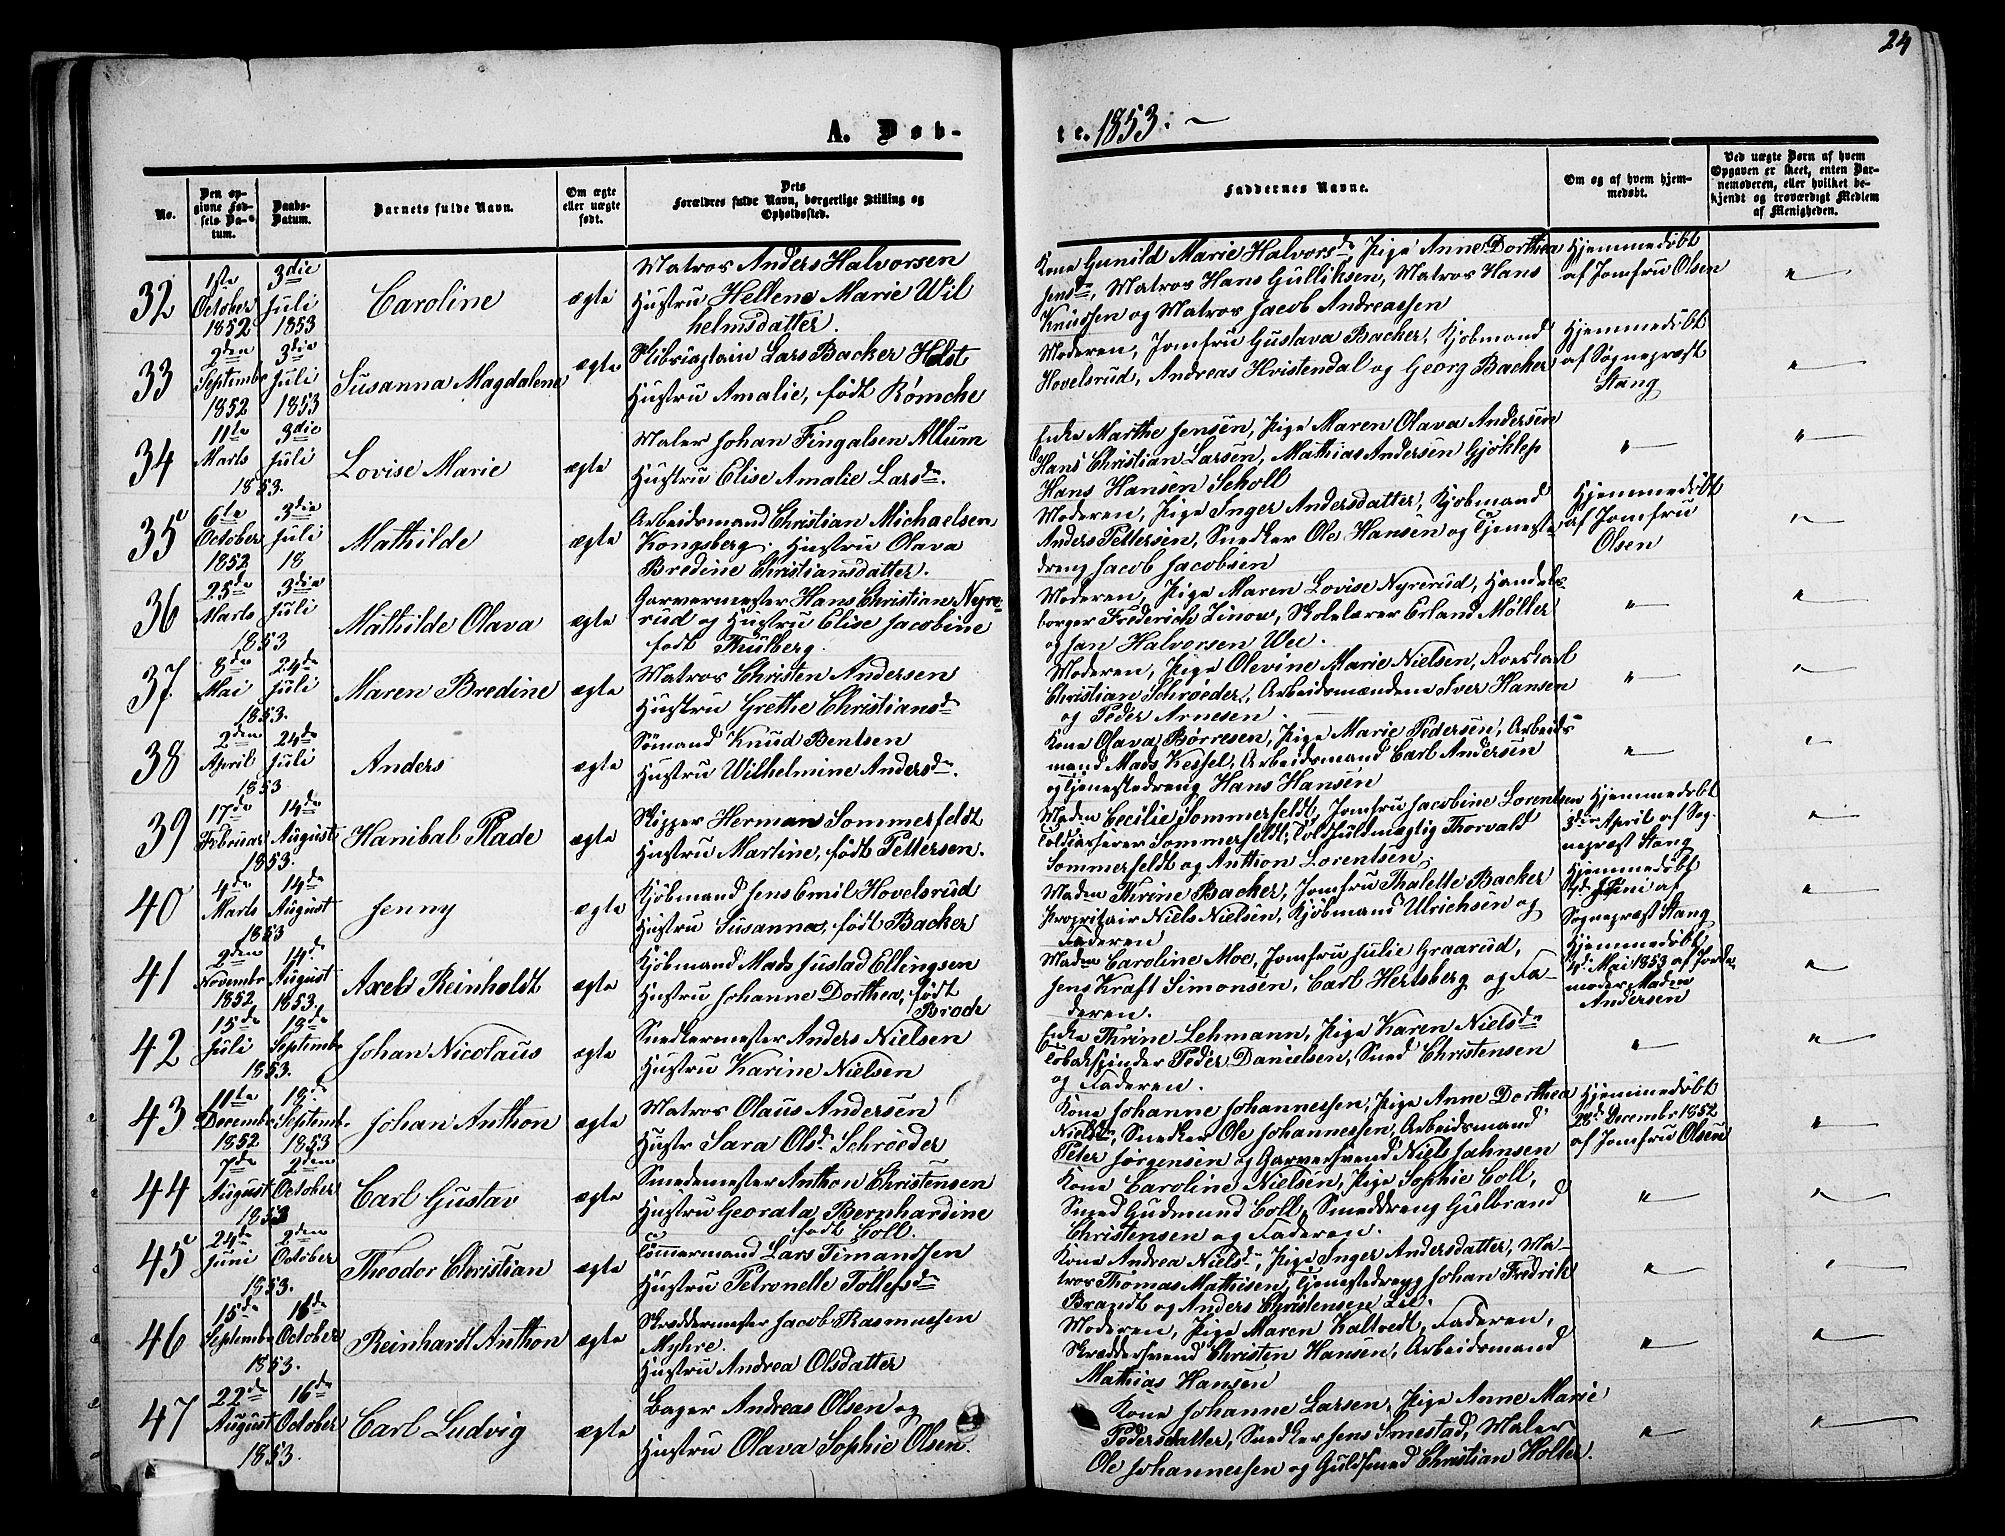 24
A. Døb-
te. 1853.
No.
Den op-
givne Fød-
sels-Da-
tum.
Daabs-
Datum.
Barnets fulde Navn.
Om ægte
eller uægte
født.
Dets
Forældres fulde Navn, borgerlige Stilling og
Opholdssted.
Faddernes Navne.
Om og af hvem hjem-
medøbt.
Ved uægte Børn af hvem
Opgaven er skeet, enten Bar-
nemoderen, eller hvilket be-
kjendt og troværdigt Medlem
af Menigheden.
32
1ste
October
1852
3die
Juli
1853
Caroline
ægte
Matros Anders Halvorsen
Hustru Hellene Marie Wil
helmsdatter.
Kone Gunild Marie Halvorsdr, Pige Anne Dorthea
Jensdr, Matros Hans Gulliksen, Matros Hans
Knudsen og Matros Jacob Andreassen
Hjemmedøbt
af Jomfru Olsen
"
33
2den
Septembr
1852
3die
Juli
1853
Susanna Magdalene
ægte
Skibscaptain Lars Backer Holst
Hustru Amalie, født Rømcke
Moderen, Jomfru Gustava Backer, Kjøbmand
Hovelsrud, Andreas Hvistendal og Georg Backer
Hjemmedøbt
af Sognepræst
Stang
"
34
11te
Marts
3die
Juli
1853.
Lovise Marie
ægte
Maler Johan Fingalsen Allum
Hustru Elise Amalie Larsdr.
Enke Marthe Jensen, Pige Maren Olava Andersen
Hans Christian Larsen, Mathias Andersen Gjøklep
Hans Hansen Scholl
"
"
35
6te
October
1852
3die
Juli
18
Mathilde
ægte
Arbeidsmand Christian Michaelsen
Kongsberg. Hustru Olava
Bredine Christiansdatter.
Moderen, Pige Inger Andersdatter, Kjøbmand
Anders Pettersen, Snedker Ole Hansen og Tjeneste
dreng Jacob Jacobsen
Hjemmedøbt
af Jomfru
Olsen
"
36
25de
Marts
3die
Juli
1853
Mathilde Olava
ægte
Garvermester Hans Christian Nyre-
rud og Hustru Elise Jacobine
født Thulberg.
Moderen, Pige Maren Lovise Nyrerud, Handels
borger Frederich Linow, Skolelærer Erland Møller
og Jan Halvorsen Wee.
"
"
37
8de
Mai
24de
Juli
1853.
Maren Bredine
ægte
Matros Christen Andersen
Hustru Grethe Christiansdr
Moderen, Pige Olevine Marie Nielsen, Roerskarl
Christian Schrøeder, Arbeidsmændene Iver Hansen
og Peder Arnesen.
"
"
38
2den
April
24de
Juli
1853
Anders
ægte
Sømand Knud Bentsen
Hustru Wilhelmine Andersdr.
Kone Olava Børresen, Pige Marie Pedersen, Arbeids
mand Mads Kessel, Arbeidsmand Carl Andersen
og Tjenestedreng Hans Hansen
"
"
39
17de
Februar
14de
August
1853.
Hanibal Plade
ægte
Skipper Herman Sommerfeldt
Hustru Martine, født Pettersen.
Madm Cecilie Sommerfeldt, Jomfru Jacobine Lorentsen
Toldcasserer Sommerfeldt, Toldfuldmægtig Thorvald
Sommerfeldt og Anthon Lorentsen
Hjemmedøbt
3die April af Sog-
nepræst Stang
"
40
4de
Marts
14de
August
1853
Jenny
ægte
Kjøbmand Jens Emil Hovelsrud
Hustru Susanna, født Backer
Madm Thrine Backer, Jomfru Thalette Backer
Propritair Niels Nielsen, Kjøbmand Ulrichsen og
Faderen
Hjemmedøbt
Juni af
Sognepræst Stang
"
41
2den
Novembr
1852
14de
August
1853.
Axel Reinholdt
ægte
Kjøbmand Mads Justad Ellingsen
Hustru Johanne Dorthea, født
Brode
Madm Caroline Moe, Jomfru Julie Graarud,
Jens Kraft Simonsen, Carl Hertsberg og Fa-
deren.
Hjemmedøbt
Mai 1853 af Jorde
moder Madm
Andersen
"
42
15de
Juli
18de
Septembr
1853.
Johan Nicolaus
ægte
Snedkermester Anders Nielsen
Hustru Karine Nielsen
Enke Thrine Lehmann, Pige Karen Nielsdr
Tobakspinder Peder Danielsen, Smed Christensen
og Faderen.
"
"
43
11te
Decembr
1852
18de
Septembr
1853
Johan Anthon
ægte
Matros Olaus Andersen
Hustr Sara Olsdr Schrøeder
Kone Johanne Johannessen, Pige Anne Dorthea
Nielsdr, Snedker Ole Johannessen, Arbeidsmand
Peter Jørgensen og Garversvend Niels Jahnsen
Hjemmedøbt
28de Decembr 1852
af Jomfru Olsen
"
44
7de
August
2den
October
1853
Carl Gustav
ægte
Smedemester Anthon Christensen
Hustru Georata Bernhardine
født Coll.
Kone Caroline Nielsen, Pige Sophie Coll,
Smed Gudmund Coll, Smeddreng Gulbrand
Christensen og Faderen.
"
"
45
24de
Juni
2den
October
1853.
Theodor Christian
ægte
Tømmermand Lars Timandsen
Hustru Petronelle Tollefsdr
Kone Andrea Nielsdr, Pige Inger Andersdatter, Ma-
tros Thomas Mathisen, Tjenestedreng Johan Fredrik
Brandt og Anders Christensen Lie.
"
"
46
15de
Septembr
16de
October
1853.
Reinhardt Anthon
ægte
Skræddermester Jacob Rasmussen
Myhre.
Hustru Andrea Olsdatter
Moderen, Pige Maren Kaltvedt, Faderen,
Skræddersvend Christen Hansen, Arbeidsmand
Mathias Hansen
"
"
47
22de
August
16de
October
1853.
Carl Ludvig
ægte
Bager Andreas Olsen og
Hustru Olava Sophie Olsen.
Kone Johanne Larsen, Pige Anne Marie
Pedersdatter, Snedker Jens Smestad, Maler
Ole Johannessen og Guldsmed Christian Holter.
"
"